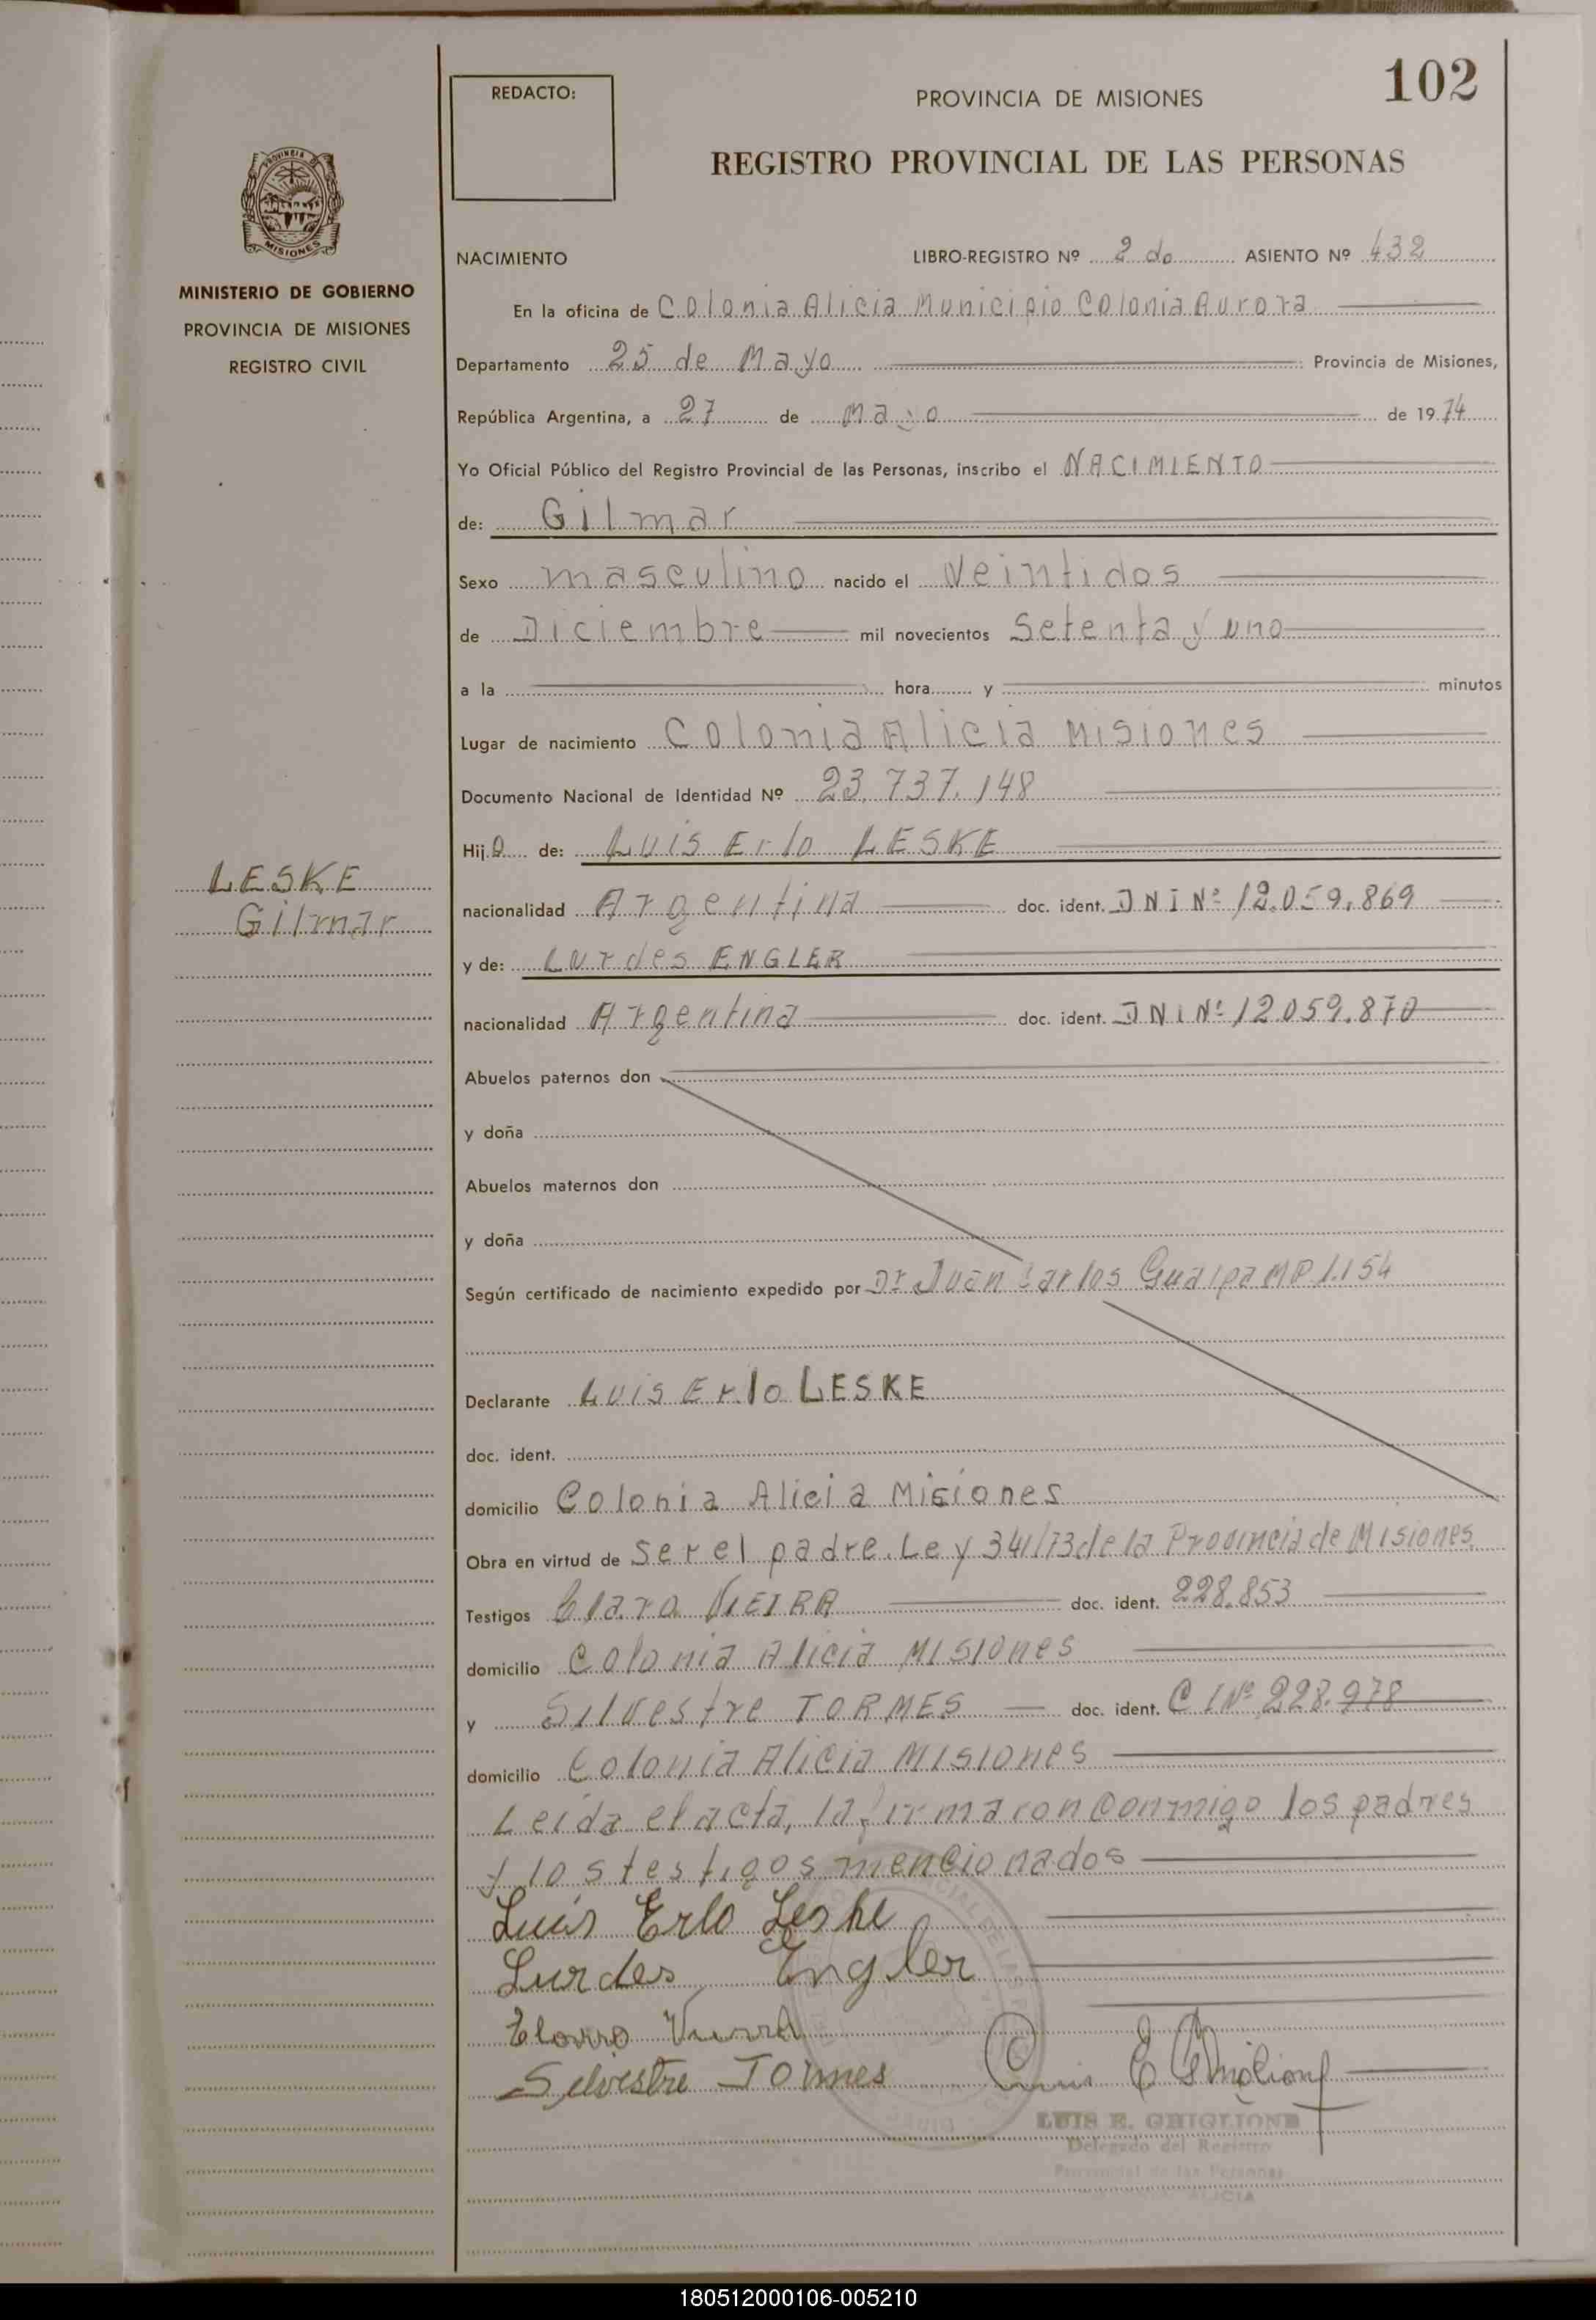 102
REDACTO:
PROVINCIA DE MISIONES
REGISTRO PROVINCIAL DE LAS PERSONAS
PROVINCIA DE
MISIONES
MINISTERIO DE GOBIERNO
PROVINCIA DE MISIONES
REGISTRO CIVIL
NACIMIENTO LIBRO-REGISTRO Nº 2 do ASIENTO Nº 432
En la oficina de Colonia Alicia Municipio Colonia Aurora
Departamento 25 de Mayo Provincia de Misiones,
República Argentina, a 27 de Mayo de 1974
Yo Oficial Público del Registro Provincial de las Personas, inscribo el NACIMIENTO
de: Gilmar
Sexo masculino nacido el Veintidos
de Diciembre mil novecientos Setenta y uno
a la hora y minutos
Lugar de nacimiento Colonia Alicia Misiones
Documento Nacional de Identidad Nº 23.737.148
Hijo de: Luis Erlo LESKE
LESKE
Gilmar
nacionalidad Argentina doc. ident. DNI Nº 12.059.869
y de: Lurdes ENGLER
nacionalidad Argentina doc. ident. DNI Nº 12.059.870
Abuelos paternos don
y doña
Abuelos maternos don
y doña
Según certificado de nacimiento expedido por Dr Juan Carlos Gualpa MP 1.154
Declarante Luis Erlo LESKE
doc. ident.
domicilio Colonia Alicia Misiones
Obra en virtud de Ser el padre. Ley 341/73 de la Provincia de Misiones
Testigos Clara VIEIRA doc. ident. 228.853
domicilio Colonia Alicia Misiones
y Silvestre TORMES doc. ident. C I Nº 228.978
domicilio Colonia Alicia Misiones
Leída el acta, la firmaron conmigo los padres
y los testigos mencionados
Luis Erlo Leske
Lurdes Engler
Silvestre Tormes
LUIS E. GHIGLIONE
Delegado del Registro
Provincial de las Personas
ALICIA
180512000106-005210